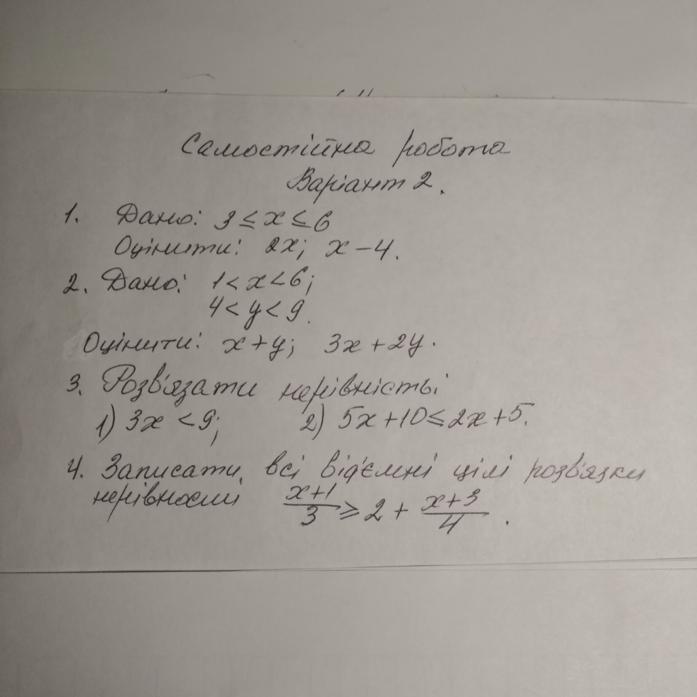 Самостійна робота
Варіант 2.
1. Дано: 3 ≤ x ≤ 6
Оцінити: 2x; x - 4.
2. Дано: 1 < x < 6;
4 < y < 9.
Оцінити: x + y; 3x + 2y.
3. Розв'язати нерівність:
1) 3x < 9; 2) 5x + 10 ≤ 2x + 5.
4. Записати всі від'ємні цілі розв'язки
нерівності (x+1)/3 ≥ 2 + (x+3)/4.